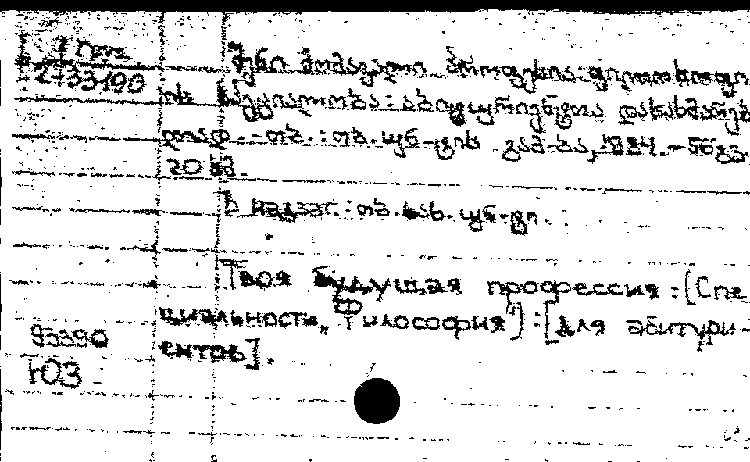 შენი მომავალი პროფესია: ფილოსოფი
2733190
ის სპეციალობა: აბიტურიენტთა დასახმარებ
ლად. - თბ.: თბ. უნ-ტის გამ-ბა, 1984. - 55გვ.
20 სმ.
თბ. სახ. უნ-ტი.
Твоя будущая профессия: [Спе
циальности „Философия"]: [для абитури-
95390
ентов].
Ю3